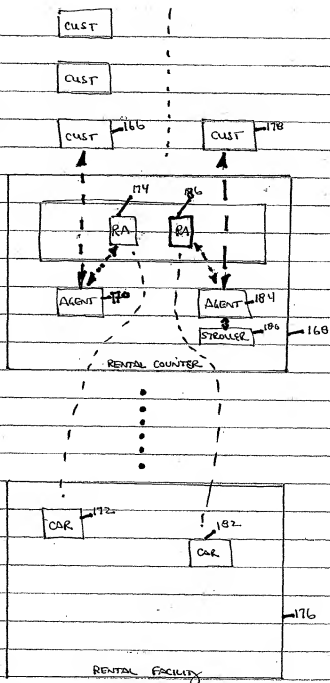 CUST
CUST
CUST 166 CUST 178
174 186
RA RA
AGENT 170 AGENT 184
STROLLER 180
168
RENTAL COUNTER
CAR 172 ! 182
CAR
176
RENTAL FACILITY